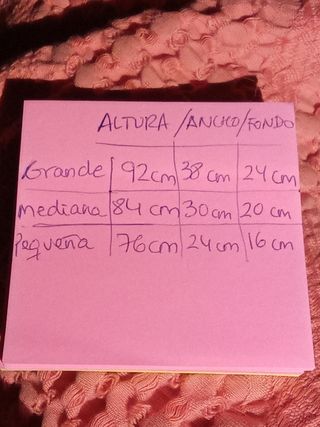 ALTURA / ANCHO / FONDO
Grande 92cm 38 cm 24 cm
Mediana 84 cm 30 cm 20 cm
Pequeña 76 cm 24 cm 16 cm